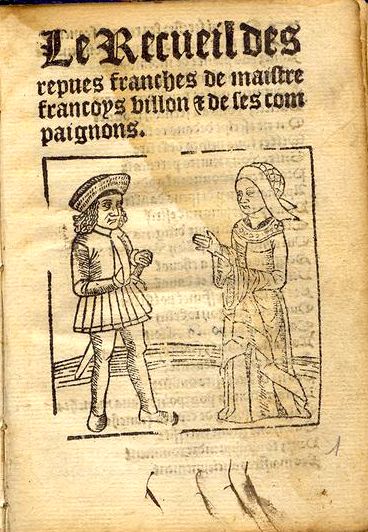 Le Recueil des
repues franches de maistre
francoys villon & de ses com
paignons.
1